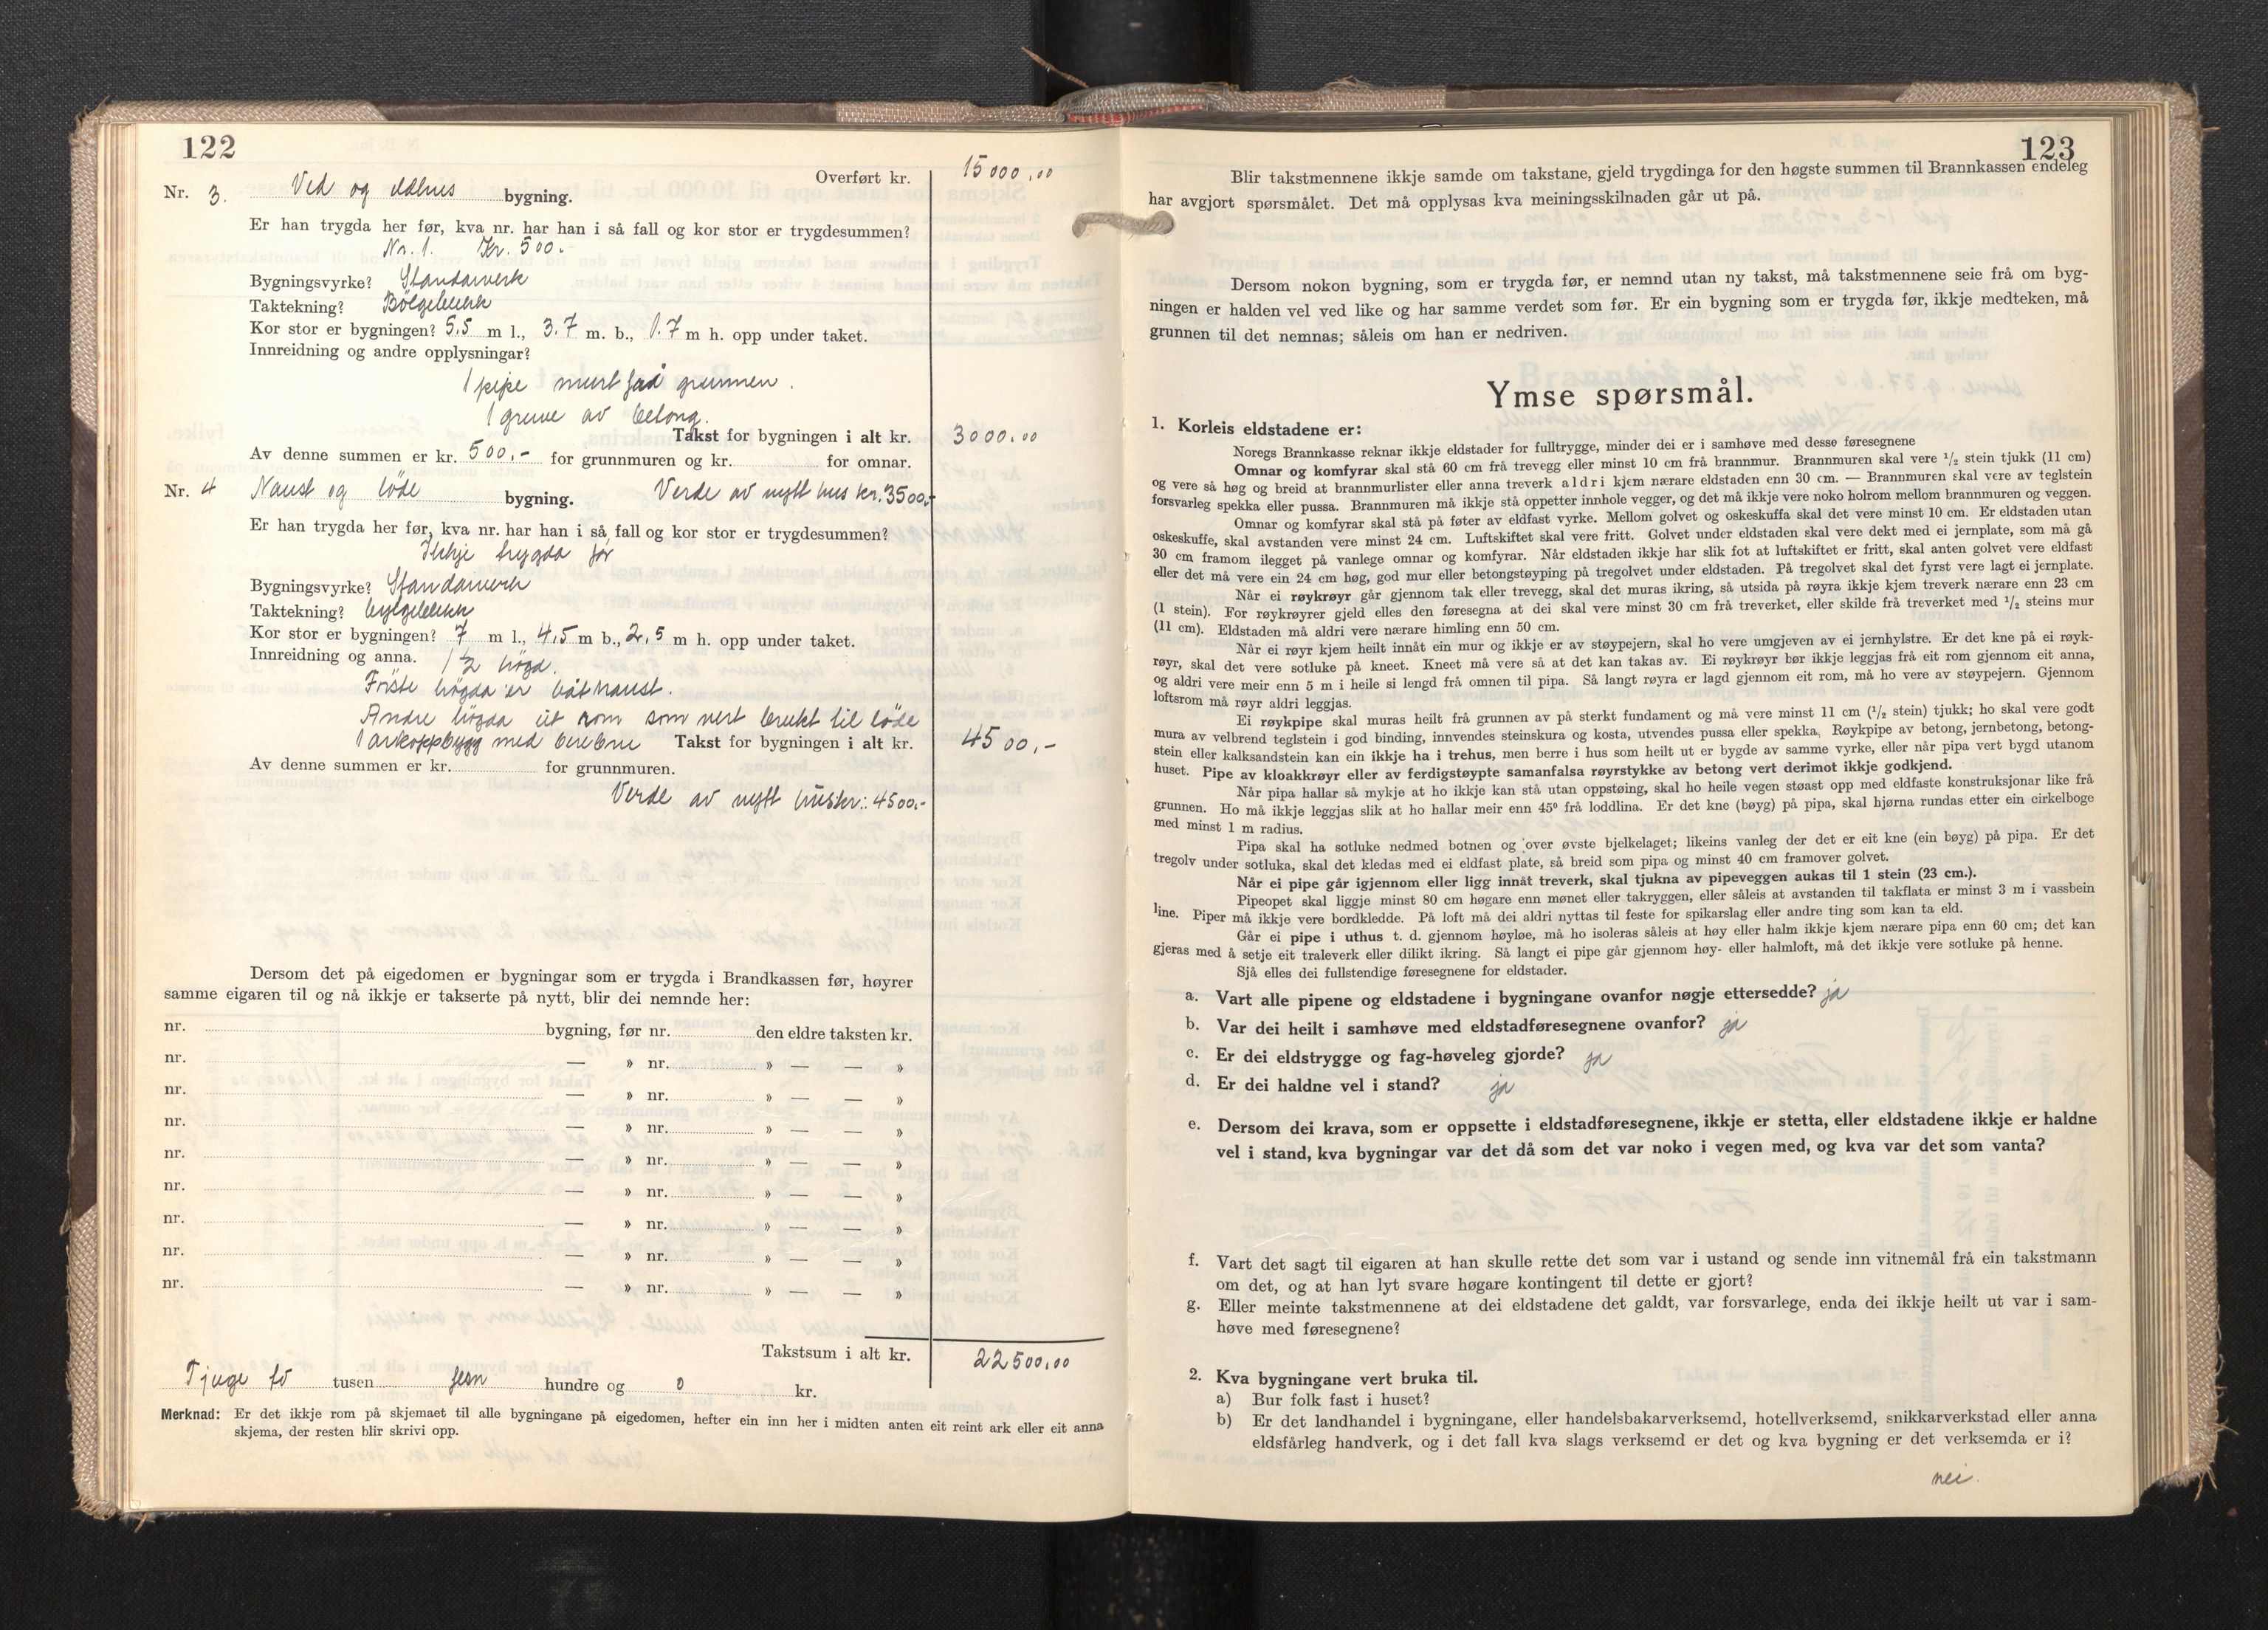 122
Overført kr. 15000,00
Nr. 3. Ved og eldhus bygning.
Er han trygda her før, kva nr. har han i så fall og kor stor er trygdesummen?
Nr. 1. Kr. 500.
Bygningsvyrke? Standarverk
Taktekning? Bölgeblekk
Kor stor er bygningen? 5,5 m l., 3.7 m. b., 1.7 m h. opp under taket.
Innreidning og andre opplysningar?
1 pipe murt frå grunnen.
1 grue av betong.
Takst for bygningen i alt kr. 3000,00
Av denne summen er kr. 500,- for grunnmuren og kr. for omnar.
Nr. 4 Naust og löde bygning. Verde av nytt hus kr. 3500,-
Er han trygda her før, kva nr. har han i så fall og kor stor er trygdesummen?
Ikkje trygda för
Bygningsvyrke? Standarverk
Taktekning? bylgeblekk
Kor stor er bygningen? 7 m l., 4,5 m b., 2,5 m h. opp under taket.
Innreidning og anna. 1 ½ högd.
Förste högda er båtnaust.
Andre högda eit rom som vert brukt til löde
1 arkoppbygg med Takst for bygningen i alt kr. 4500,-
Av denne summen er kr. for grunnmuren.
Verde av nytt hus kr.: 4500,-
Dersom det på eigedomen er bygningar som er trygda i Brandkassen før, høyrer
samme eigaren til og nå ikkje er takserte på nytt, blir dei nemnde her:
nr. bygning, før nr. den eldre taksten kr.
nr. — » nr. » — — »
nr. — » nr. » — — »
nr. — » nr. » — — »
nr. — » nr. » — — »
nr. — » nr. » — — »
nr. — » nr. » — — »
nr. — » nr. » — — »
nr. — » nr. » — — »
Takstsum i alt kr. 22500,00
Tjuge to tusen fem hundre og 0 kr.
Merknad: Er det ikkje rom på skjemaet til alle bygningane på eigedomen, hefter ein inn her i midten anten eit reint ark eller eit anna
skjema, der resten blir skrivi opp.
123
Blir takstmennene ikkje samde om takstane, gjeld trygdinga for den høgste summen til Brannkassen endeleg
har avgjort spørsmålet. Det må opplysas kva meiningsskilnaden går ut på.
Dersom nokon bygning, som er trygda før, er nemnd utan ny takst, må takstmennene seie frå om byg-
ningen er halden vel ved like og har samme verdet som før. Er ein bygning som er trygda før, ikkje medteken, må
grunnen til det nemnas; såleis om han er nedriven.
Ymse spørsmål.
1. Korleis eldstadene er:
Noregs Brannkasse reknar ikkje eldstader for fulltrygge, minder dei er i samhøve med desse føresegnene
Omnar og komfyrar skal stå 60 cm frå trevegg eller minst 10 cm frå brannmur. Brannmuren skal vere ¹/₂ stein tjukk (11 cm)
og vere så høg og breid at brannmurlister eller anna treverk aldri kjem nærare eldstaden enn 30 cm. — Brannmuren skal vere av teglstein
forsvarleg spekka eller pussa. Brannmuren må ikkje stå oppetter innhole vegger, og det må ikkje vere noko holrom mellom brannmuren og veggen.
Omnar og komfyrar skal stå på føter av eldfast vyrke. Mellom golvet og oskeskuffa skal det vere minst 10 cm. Er eldstaden utan
oskeskuffe, skal avstanden vere minst 24 cm. Luftskiftet skal vere fritt. Golvet under eldstaden skal vere dekt med ei jernplate, som må gå
30 cm framom ilegget på vanlege omnar og komfyrar. Når eldstaden ikkje har slik fot at luftskiftet er fritt, skal anten golvet vere eldfast
eller det må vere ein 24 cm høg, god mur eller betongstøyping på tregolvet under eldstaden. På tregolvet skal det fyrst vere lagt ei jernplate.
Når ei røykrøyr går gjennom tak eller trevegg, skal det muras ikring, så utsida på røyra ikkje kjem treverk nærare enn 23 cm
(1 stein). For røykrøyrer gjeld elles den føresegna at dei skal vere minst 30 cm frå treverket, eller skilde frå treverket med ¹/₂ steins mur
(11 cm). Eldstaden må aldri vere nærare himling enn 50 cm.
Når ei røyr kjem heilt innåt ein mur og ikkje er av støypejern, skal ho vere umgjeven av ei jernhylstre. Er det kne på ei røyk-
røyr, skal det vere sotluke på kneet. Kneet må vere så at det kan takas av. Ei røykrøyr bør ikkje leggjas frå eit rom gjennom eit anna,
og aldri vere meir enn 5 m i heile si lengd frå omnen til pipa. Så langt røyra er lagd gjennom eit rom, må ho vere av støypejern. Gjennom
loftsrom må røyr aldri leggjas.
Ei røykpipe skal muras heilt frå grunnen av på sterkt fundament og må vere minst 11 cm (¹/₂ stein) tjukk; ho skal vere godt
mura av velbrend teglstein i god binding, innvendes steinskura og kosta, utvendes pussa eller spekka. Røykpipe av betong, jernbetong, betong-
stein eller kalksandstein kan ein ikkje ha i trehus, men berre i hus som heilt ut er bygde av samme vyrke, eller når pipa vert bygd utanom
huset. Pipe av kloakkrøyr eller av ferdigstøypte samanfalsa røyrstykke av betong vert derimot ikkje godkjend.
Når pipa hallar så mykje at ho ikkje kan stå utan oppstøing, skal ho heile vegen støast opp med eldfaste konstruksjonar like frå
grunnen. Ho må ikkje leggjas slik at ho hallar meir enn 45° frå loddlina. Er det kne (bøyg) på pipa, skal hjørna rundas etter ein cirkelboge
med minst 1 m radius.
Pipa skal ha sotluke nedmed botnen og over øvste bjelkelaget; likeins vanleg der det er eit kne (ein bøyg) på pipa. Er det
tregolv under sotluka, skal det kledas med ei eldfast plate, så breid som pipa og minst 40 cm framover golvet.
Når ei pipe går igjennom eller ligg innåt treverk, skal tjukna av pipeveggen aukas til 1 stein (23 cm.).
Pipeopet skal liggje minst 80 cm høgare enn mønet eller takryggen, eller såleis at avstanden til takflata er minst 3 m i vassbein
line. Piper må ikkje vere bordkledde. På loft må dei aldri nyttas til feste for spikarslag eller andre ting som kan ta eld.
Går ei pipe i uthus t. d. gjennom høyløe, må ho isoleras såleis at høy eller halm ikkje kjem nærare pipa enn 60 cm; det kan
gjeras med å setje eit traleverk eller dilikt ikring. Så langt ei pipe går gjennom høy- eller halmloft, må det ikkje vere sotluke på henne.
Sjå elles dei fullstendige føresegnene for eldstader.
a. Vart alle pipene og eldstadene i bygningane ovanfor nøgje ettersedde? ja
b. Var dei heilt i samhøve med eldstadføresegnene ovanfor? ja
c. Er dei eldstrygge og fag-høveleg gjorde? ja
d. Er dei haldne vel i stand? ja
e. Dersom dei krava, som er oppsette i eldstadføresegnene, ikkje er stetta, eller eldstadene ikkje er haldne
vel i stand, kva bygningar var det då som det var noko i vegen med, og kva var det som vanta?
f. Vart det sagt til eigaren at han skulle rette det som var i ustand og sende inn vitnemål frå ein takstmann
om det, og at han lyt svare høgare kontingent til dette er gjort?
g. Eller meinte takstmennene at dei eldstadene det galdt, var forsvarlege, enda dei ikkje heilt ut var i sam-
høve med føresegnene?
2. Kva bygningane vert bruka til.
a) Bur folk fast i huset?
b) Er det landhandel i bygningane, eller handelsbakarverksemd, hotellverksemd, snikkarverkstad eller anna
eldsfårleg handverk, og i det fall kva slags verksemd er det og kva bygning er det verksemda er i?
nei.